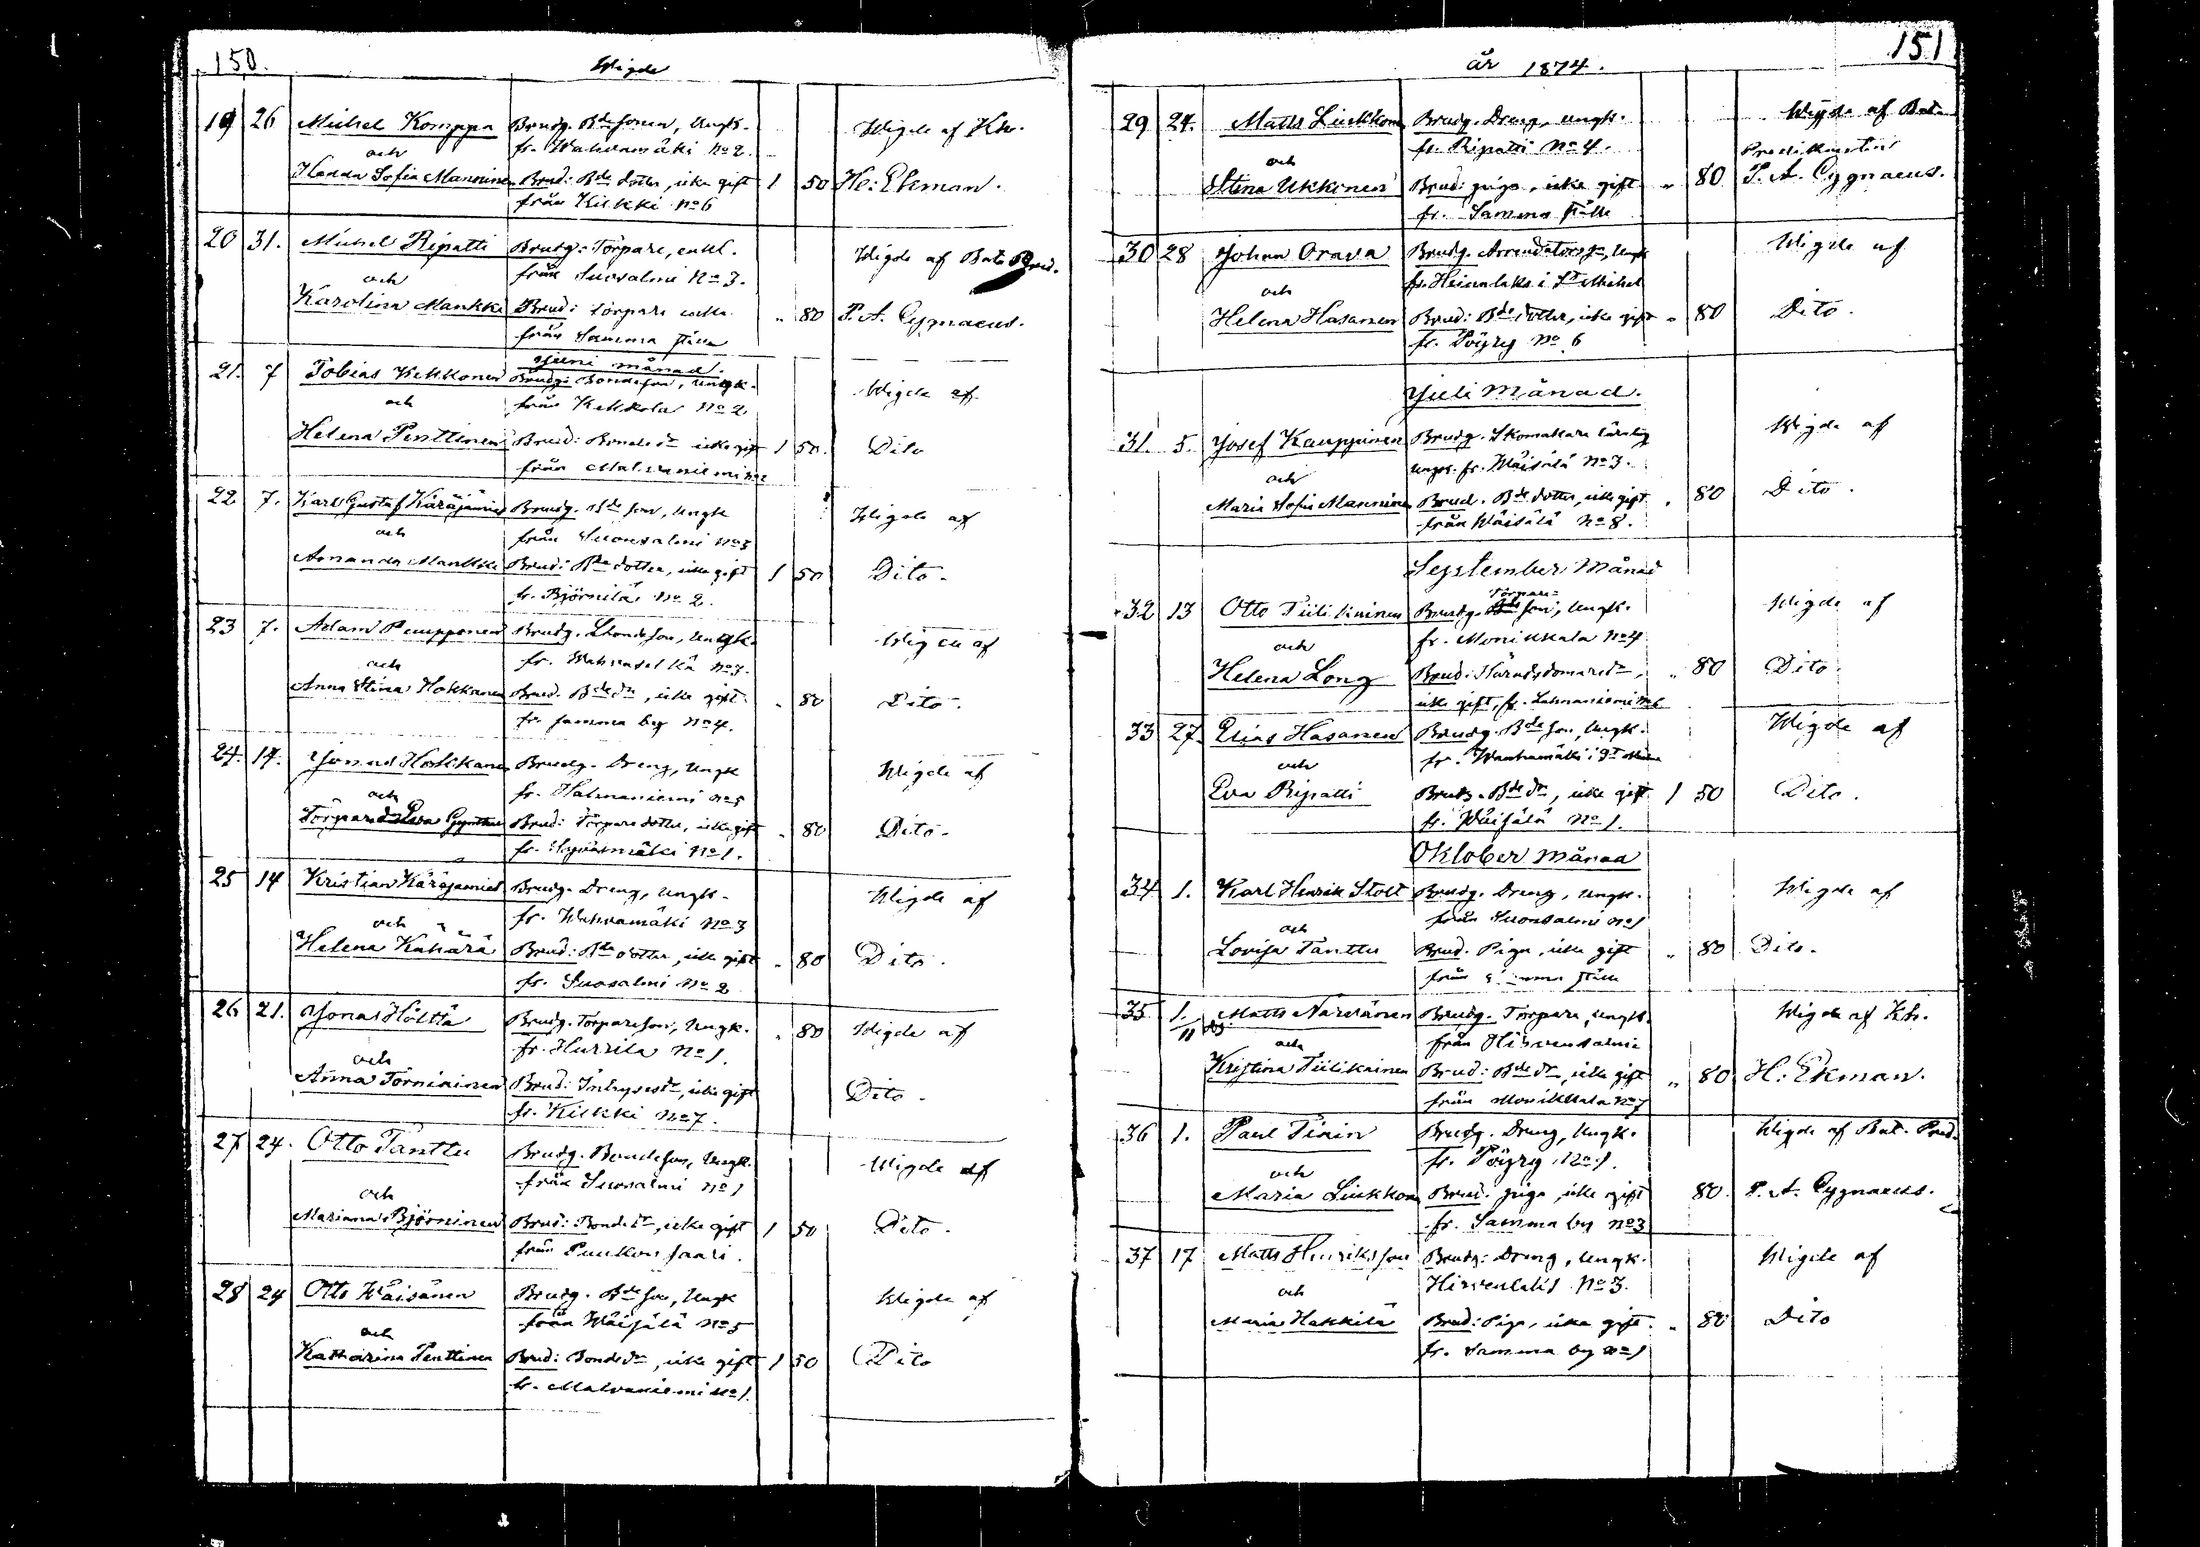 150.
Wigde
19 26 Michel Komppa Brudg. Bde sonen, Ungk.
fr. Wahvamäki No 2. Wigde af Kh.
och
Hanna Sofia Manninen Brud: Bde dotter, icke gift 1 50 H: Ekman.
från Kiekki No 6
20 31. Michel Ripatti Brudg: Torpare, enkl.
från Suosalmi No 3. Wigde af Bats Pred.
och
Karolina Mankki Brud: torpare enka „ 80 P. A. Cygnaeus.
från Samma ställe
Juni månad.
21. 7 Tobias Kekkonen Brudg: Bondeson, Ungk. Wigde af
och från Kekkola No 2
Helena Penttinen Brud: Bondedr icke gift 1 50. Dito
från Malvaniemi No 2
22 7. Karl Gustaf Käräjämies Brudg. Bde son, Ungk Wigde af
och från Suonsalmi No 3
Amanda Mankki Brud: Bde dotter, icke gift 1 50 Dito.
fr. Björnilä No 2.
23 7. Adam Pumpponen Brudg. Bondeson, Ungk. Wigde af
och fr. Wahvaselkä No 3.
Anna Stina Hokkanen Brud. Bde dr, icke gift „ 80 Dito.
fr. samma by No 4.
24. 14. Jonas Hokkanen Brudg. Dreng, Ungk Wigde af
och fr. Halmaniemi No 5
Torpare dr Eva Brud: Torpare dotter, icke gift „ 80 Dito.
fr. No 1.
25 14 Kristian Käräjämies Brudg. Dreng, Ungk. Wigde af
och fr. Wahvamäki No 3
Helena Kähärä Brud: Bde dotter, icke gift „ 80 Dito.
fr. Suosalmi No 2
26 21. Jonas Hölttä Brudg. Torpareson, Ungk. „ 80 Wigde af
och fr. Hurrila No 1.
Anna Torniainen Brud: Inhysesdr, icke gift Dito.
fr. Kiekki No 7.
27 24. Otto Tanttu Brudg. Bondeson, Ungk. Wigde af
från Suosalmi No 1
och
Mariana Björninen Brud: Bondedr, icke gift 1 50 Dito.
från Puukonsaari.
28 24 Otto Wäisänen Brudg. Bde son, Ungk Wigde af
från Wäisälä No 5
och
Katharina Penttinen Brud: Bondedr, icke gift 1 50 Dito
fr. Malvaniemi No 1.
år 1874. 151
29 24. Matts Liukkonen Brudg. Dreng, Ungk. Wigde af Bat.
fr. Ripatti No 4. Predikanten
och
Stina Ukkonen Brud: piga, icke gift „ 80 P. A. Cygnaeus.
fr. Samma ställe
30 28 Johan Orava Brudg. Arrendators sn, Ungk Wigde af
fr. Heinälaks i St Michel
och
Helena Hasanen Brud: Bde dotter, icke gift „ 80 Dito.
fr. Pöyry No 6
Juli Månad.
31. 5. Josef Kauppinen Brudg. Skomakare lärling Wigde af
ungk. fr. Wäisälä No 3.
och
Maria Sofia Manninen Brud. Bde dotter, icke gift „ 80 Dito.
från Wäisälä No 8.
September Månad
Torpare
32 13 Otto Tiilikainen Brudg. Bde son, Ungk. Wigde af
fr. Monikkala No 4
och
Helena Long Brud: Häradsdomaredr, „ 80 Dito.
icke gift, fr. Lahnaniemi No 6
33 27. Elias Hasanen Brudg. Bde son, Ungk. Wigde af
fr. Wanhamäki i St Michel
och
Eva Ripatti Brud. Bde dr, icke gift 1 50 Dito.
fr. Wäisälä No 1.
Oktober månad
34 1. Karl Henrik Stolt Brudg. Dreng, Ungk. Wigde af
från Suonsalmi No 1
och
Lovisa Tanttu Brud. Piga, icke gift „ 80 Dito.
från samma ställe
35 1. Matts Närvänen Brudg. Torpare, Ungk. Wigde af Kh.
11 från Hirvensalmi
och
Kristina Tiilikainen Brud: Bde dr, icke gift „ 80 H: Ekman.
från Monikkala No 7
36 1. Paul Tirin Brudg. Dreng, Ungk. Wigde af Bat. Pred.
fr. Pöyry No 1.
och
Maria Liukkonen Brud. piga, icke gift 80. P. A. Cygnaeus.
fr. Samma by No 3
37 17 Matts Henriksson Brudg: Dreng, Ungk. Wigde af
Hirvenlaks No 3.
och
Maria Hakkila Brud: Piga, icke gift „ 80 Dito
fr. samma by No 1